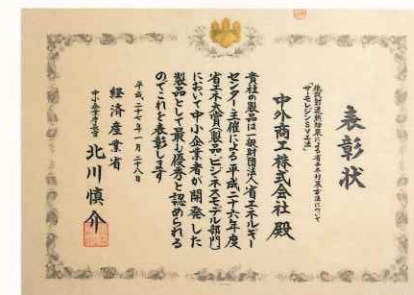 表彰状
「サーモレジンSV工法」
中外商工株式会社 殿
貴社の製品は一般財団法人省エネルギー
センター主催による平成二十六年度
省エネ大賞(製品・ビジネスモデル部門)
において中小企業者が開発した
製品として最も優秀と認められる
のでこれを表彰します
平成二十七年一月二十八日
経済産業省
中小企業庁長官 北川慎介